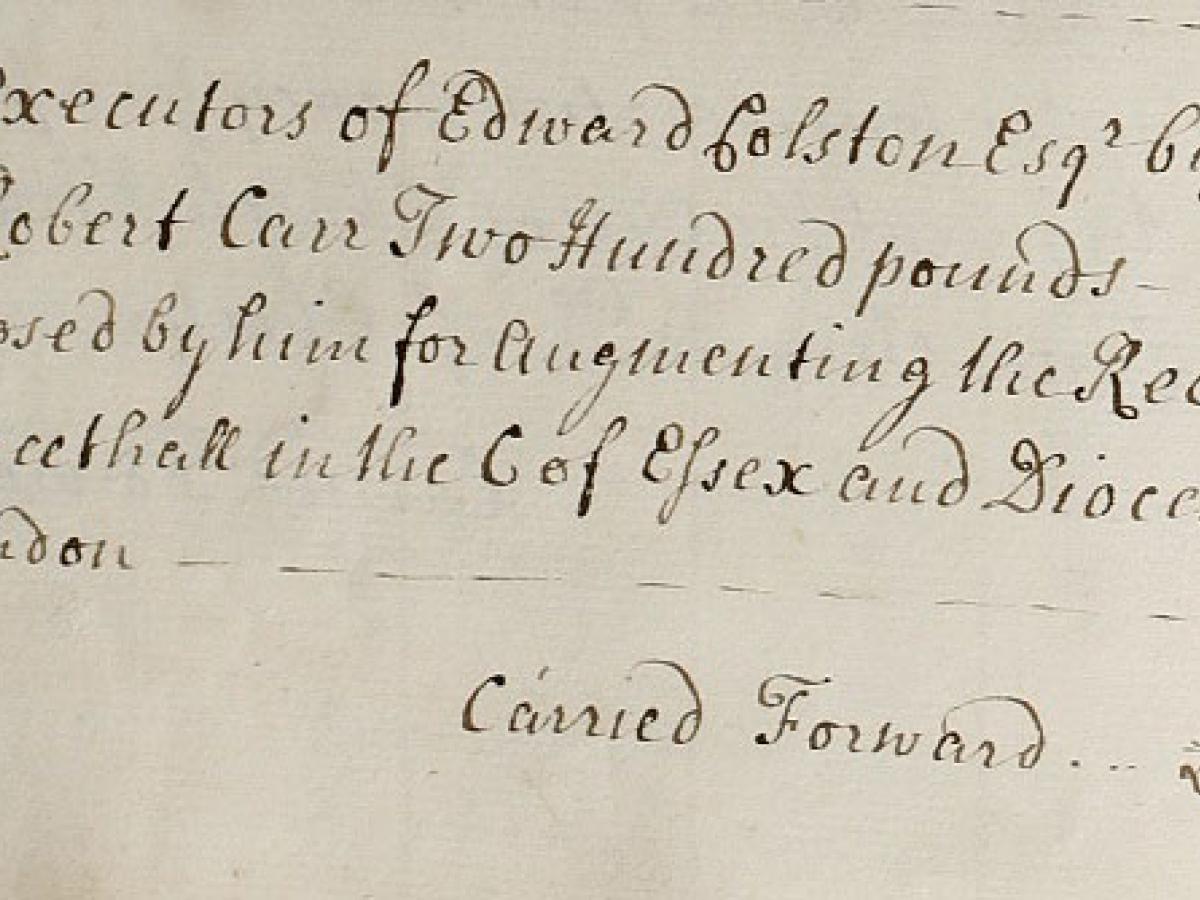 Executors of Edward Colston Esqr by
Robert Carr Two Hundred pounds -
osed by him for Augmenting the Rec
cethall in the C of Essex and Dioce
ndon
Carried Forward . . .